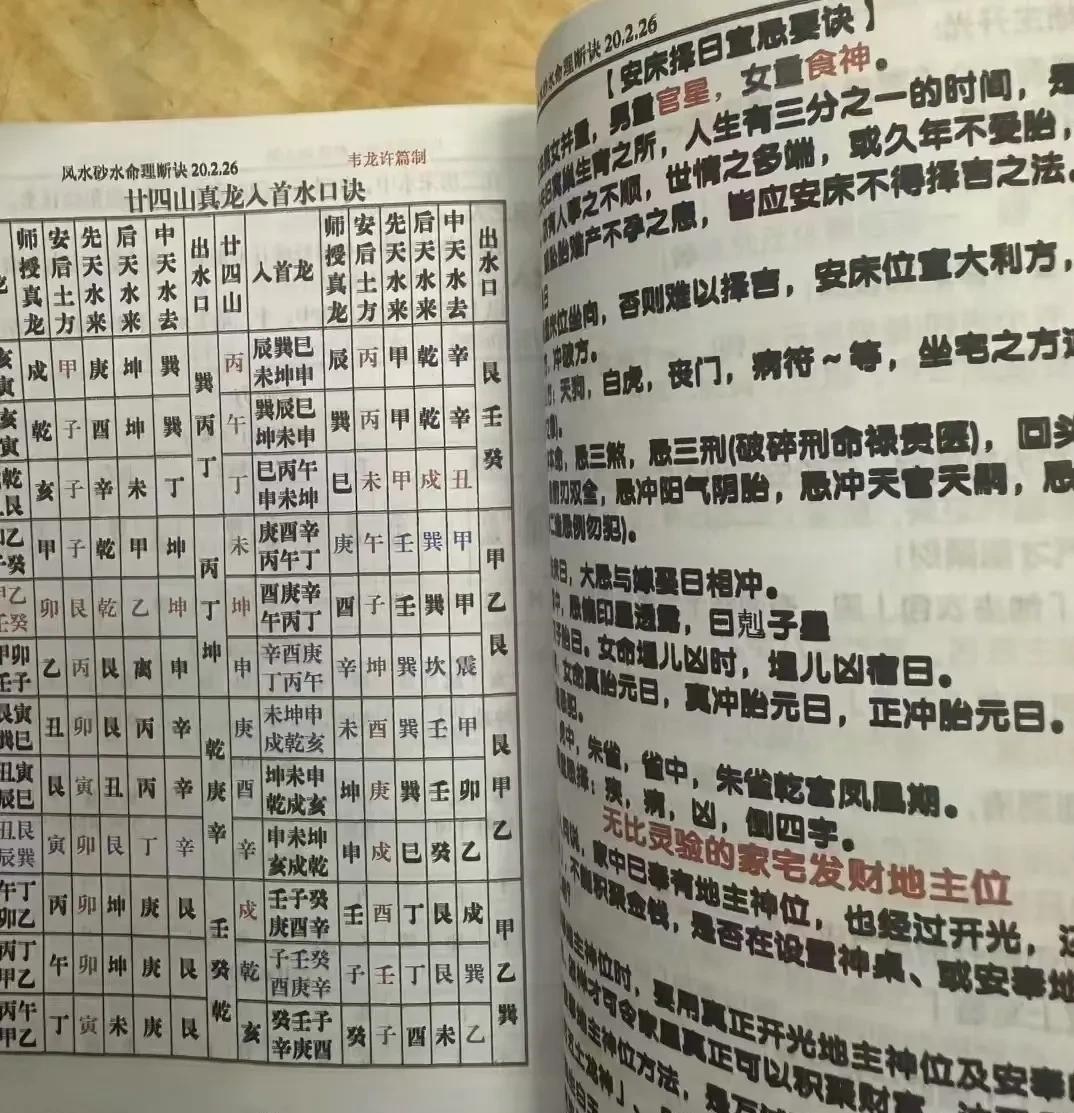 风水砂水命理断诀 20.2.26 韦龙许篇制
廿四山真龙入首水口诀
师授真龙 安后土方 先天水来 后天水来 中天水去 出水口 廿四山 入首龙 师授真龙 安后土方 先天水来 后天水来 中天水去 出水口
戌 甲 庚 坤 巽 巽丙丁 丙 辰巽巳未坤申 辰 丙 甲 乾 辛 艮壬癸
乾 子 酉 坤 巽 午 巽辰巳坤未申 巽 丙 甲 乾 辛
亥 子 辛 未 丁 丁 巳丙午申未坤 巳 未 甲 戌 丑
甲 子 乾 甲 坤 丙丁坤 未 庚酉辛丙午丁 庚 午 壬 巽 甲 甲乙艮
卯 艮 乾 乙 坤 坤 酉庚辛午丙丁 酉 子 壬 巽 甲
乙 丙 艮 离 申 申 辛酉庚丁丙午 辛 坤 巽 坎 震
丑 卯 艮 丙 辛 乾庚辛 庚 未坤申戌乾亥 未 酉 巽 壬 甲 艮甲乙
艮 寅 丑 丙 辛 酉 坤未申乾戌亥 坤 庚 巽 壬 卯
寅 卯 艮 丁 辛 辛 申未坤亥戌乾 申 戌 巳 癸 乙
丙 卯 坤 庚 艮 壬癸乾 戌 壬子癸庚酉辛 壬 酉 丁 艮 戌 甲乙巽
午 卯 坤 庚 艮 乾 子壬癸酉庚辛 子 壬 丁 艮 巽
丁 寅 未 庚 艮 亥 癸壬子辛庚酉 癸 子 酉 未 乙
水命理断诀 20.2.26
【安床择日宜忌要诀】
男女并重，男重官星，女重食神。
生育之所，人生有三分之一的时间，是
有人事之不顺，世情之多端，或久年不受胎，
坠胎难产不孕之患，皆应安床不得择吉之法。
日
床位坐向，否则难以择吉，安床位宜大利方，
冲破方。
天狗，白虎，丧门，病符～等，坐宅之方
忌三煞，忌三刑(破碎刑命禄贵匿)，回头
双全，忌冲阳气阴胎，忌冲天官天嗣，忌
忌例勿犯)。
日，大忌与嫁娶日相冲。
冲，忌偏印重透露，日剋子星
胎日。女命埋儿凶时，埋儿凶宿日。
女命真胎元日，真冲胎元日，正冲胎元日。
犯。
中，朱雀，雀中，朱雀乾宫凤凰期。
忌择：疾，病，凶，倒四字。
无比灵验的家宅发财地主位
家中日奉有地主神位，也经过开光，还
不能积聚金钱，是否在设置神桌、或安奉地
地主神位时，要用真正开光地主神位及安奉
神才可令家里真正可以积聚财富
地主神位方法，是
土龙神」、